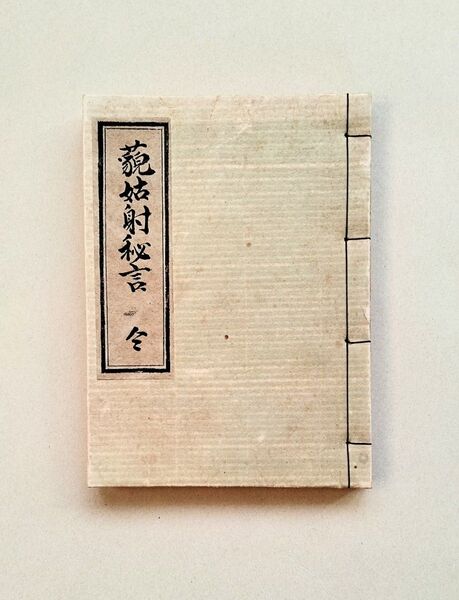 藐姑射秘言 全